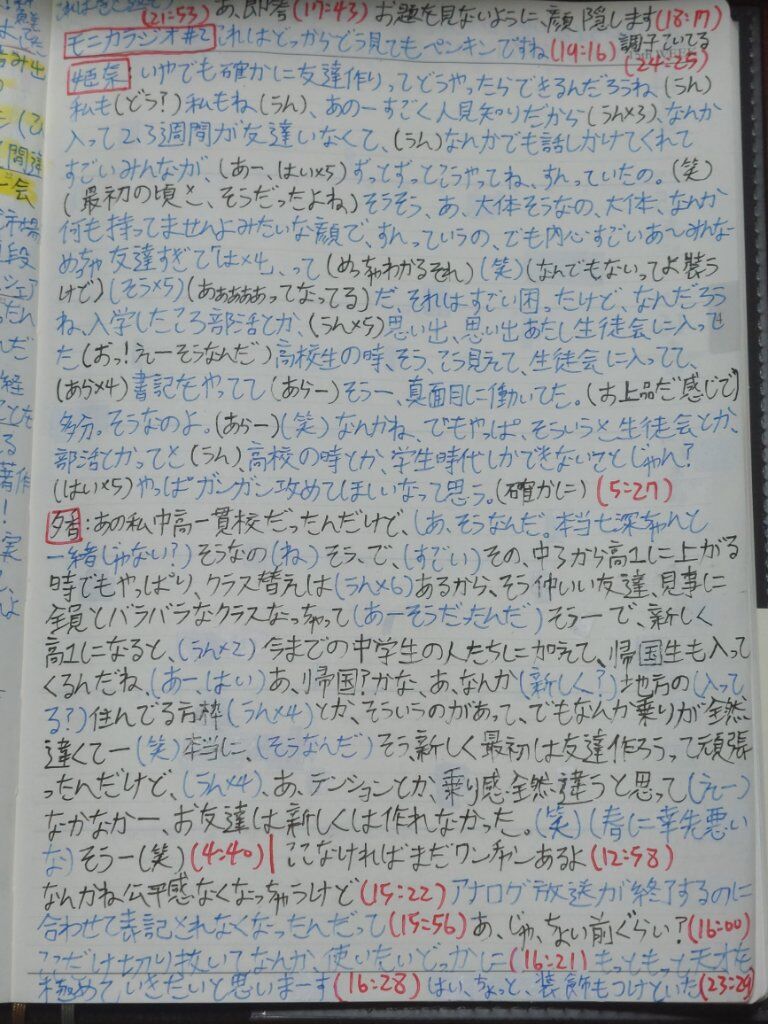 (21:53) あ、即答(17:43) お題を見ないように、顔隠します(18:17)
モニカラジオ#2 これはどっからどう見てもペンギンですね(19:16) 調子ていてる(24:25)
姫奈:いやでも確かに友達作りってどうやったらできるんだろうね、(うん)
私も(どう?)私もね(うん)、あのーすごく人見知りだから(うん×3)、なんか
入って2、3週間が友達いなくて、(うん)なんかでも話しかけてくれて
すごいみんなが、(あー、はい×5)ずっとずっとこうやってね、すんっていたの。(笑)
(最初の頃さ、そうだったよね)そうそう、あ、大体そうなの、大体、なんか
何も持ってませんよみたいな顔で、すんっていうの、でも内心すごいあ〜みんな
めっちゃ友達すぎて「は×4、って(めっちゃわかるそれ)(笑)(なんでもないってよ装う
けど)(そう×5)(あぁあああってなってる)だ、それはすごい困ったけど、なんだろう
ね、入学したころ部活とか、(うん×5)思い出、思い出あたし生徒会に入って
た(おっ!えーそうなんだ)高校生の時、そう、こう見えて、生徒会に入ってて、
(あら×4)書記をやってて(あらー)そうー、真面目に働いてた。(お上品だ感じで)
多分。そうなのよ。(あらー)(笑)なんかね、でもやっぱ、そういうさ生徒会とか、
部活とかってさ(うん)、高校の時とか、学生時代しかできないことじゃん?
(はい×5)やっぱガンガン攻めてほしいなって思う。(確かに)(5:27)
夕香:あの私中高一貫校だったんだけど、(あ、そうなんだ。本当七深ちゃんと
一緒じゃない?)そうなの(ね)そう、で、(すごい)その、中3から高1に上がる
時でもやっぱり、クラス替えは(うん×6)あるから、そう仲いい友達、見事に
全員とバラバラなクラスなっちゃって(あーそうだったんだ)そうーで、新しく
高1になると、(うん×2)今までの中学生の人たちに加えて、帰国生も入って
くるんだね、(あー、はい)あ、帰国?かな、あ、なんか(新しく?)地方の(入って
る?)住んでる方枠(うん×4)とか、そういうのがあって、でもなんか乗りが全然
違くてー(笑)本当に、(そうなんだ)そう、新しく最初は友達作ろうって頑張
ったんだけど、(うん×4)、あ、テンションとか、乗り感全然違うと思って(えー)
なかなかー、お友達は新しくは作れなかった。(笑)(春に幸先悪い
な)そうー(笑)(4:40)| ここなければまだワンチャンあるよ(12:58)
なんかね公平感なくなっちゃうけど(15:22) アナログ放送が終了するのに
合わせて表記されなくなったんだって(15:56) あ、じゃ、ちょい前ぐらい?(16:00)
ここだけ切り抜いてなんか、使いたいどっかに(16:21) もっともっと天才を
極めていきたいと思いまーす(16:28) はい、ちょっと、装飾もつけといた(23:29)